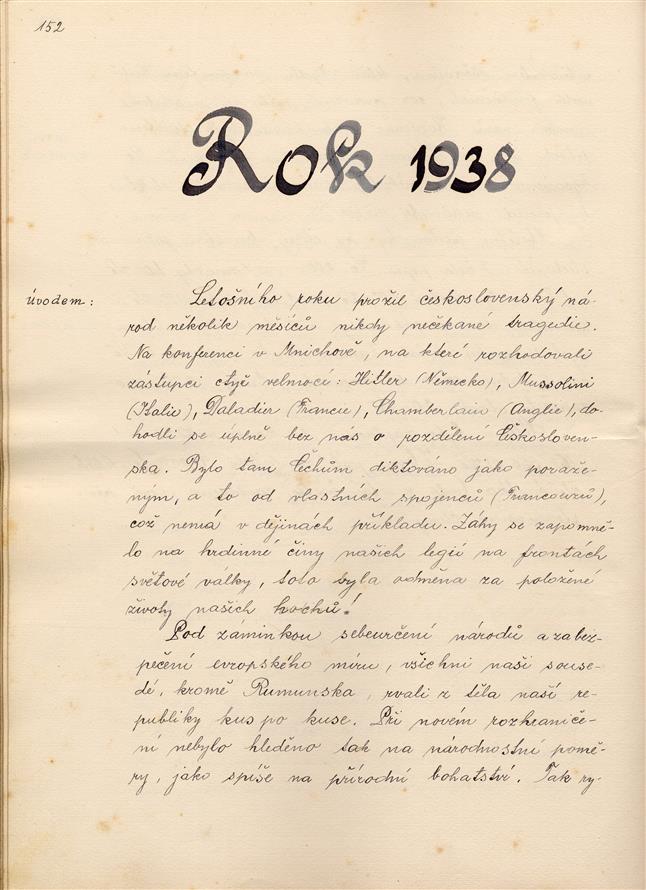 152
Rok 1938
Úvodem:
Letošního roku prožil československý ná-
rod několik měsíců nikdy nečekané tragedie.
Na konferenci v Mnichově, na které rozhodovali
zástupci čtyř velmocí: Hitler (Německo), Mussolini
(Italie), Daladier (Francie), Chamberlain (Anglie), do-
hodli se úplně bez nás o rozdělení Českosloven-
ska. Bylo tam Čechům diktováno jako poraže-
ným, a to od vlastních spojenců (Francouzů),
což nemá v dějinách příkladu. Záhy se zapomně-
lo na hrdinné činy našich legií na frontách
světové války, toto byla odměna za položené
životy našich hochů!
Pod záminkou sebeurčení národů a zabez-
pečení evropského míru, všichni naši souse-
dé, kromě Rumunska, rvali z těla naší re-
publiky kus po kuse. Při novém rozhraniče-
ní nebylo hleděno tak na národnostní pomě-
ry, jako spíše na přírodní bohatství. Tak ry-